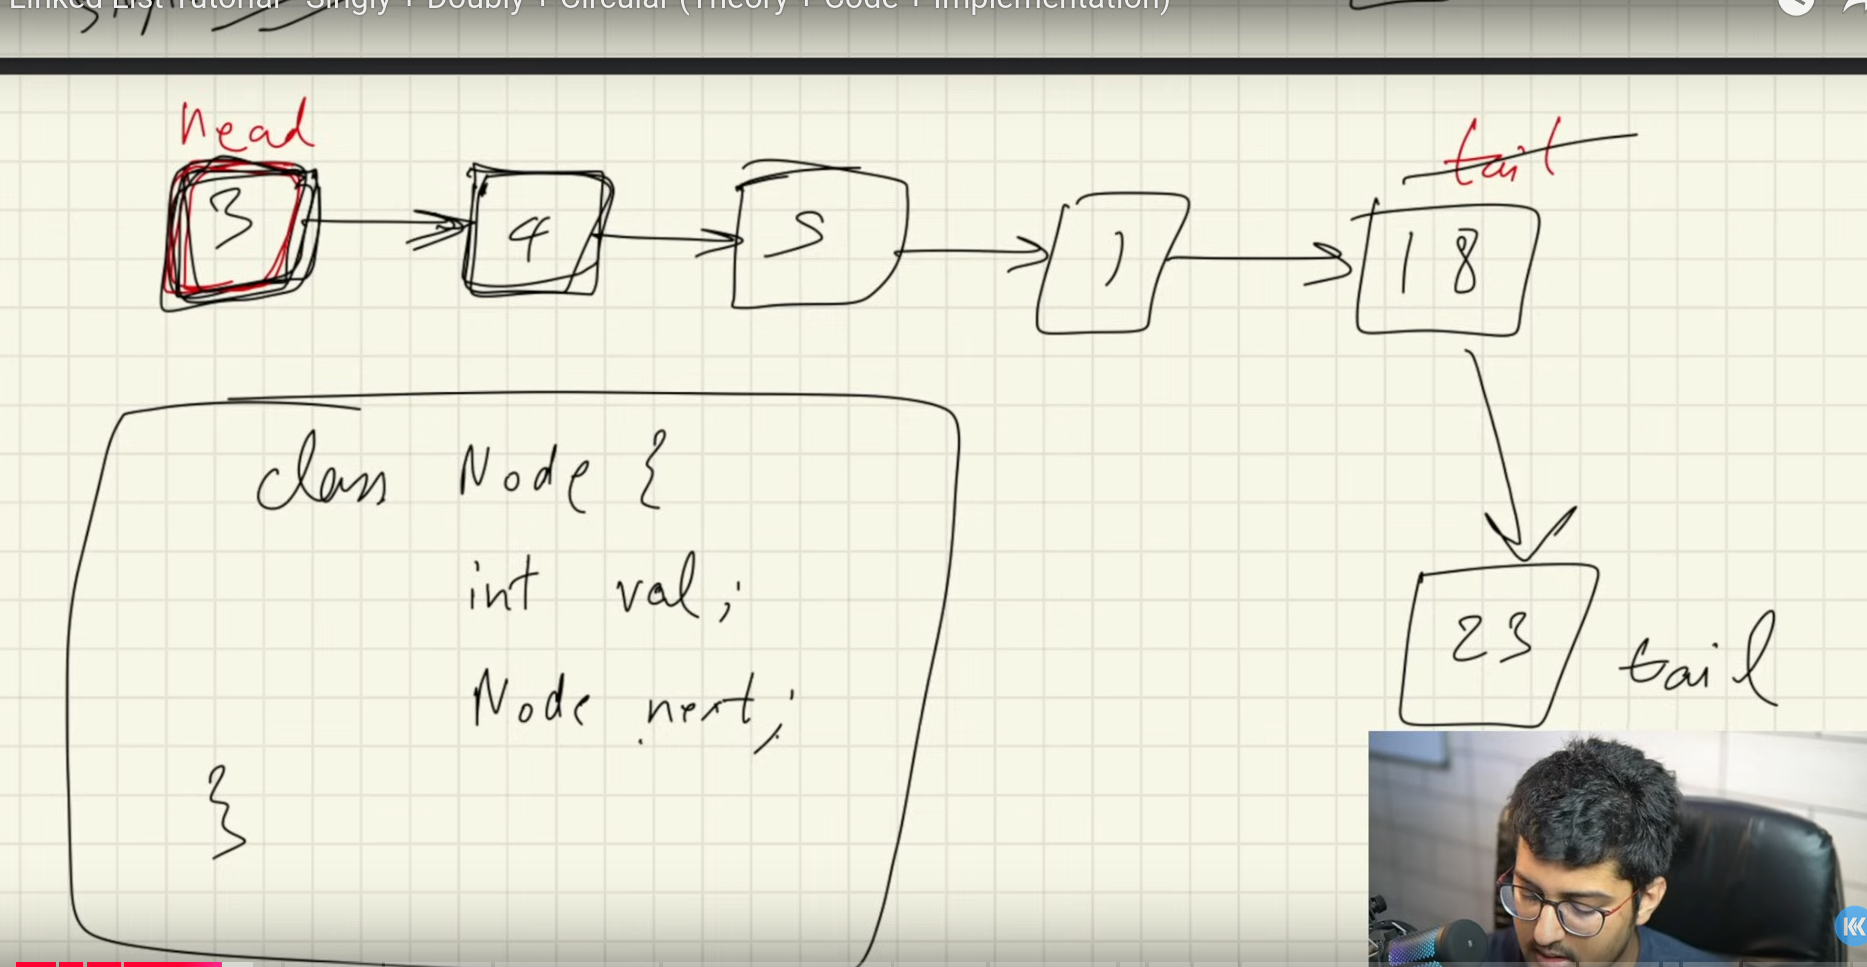 Linked List Tutorial - Singly + Doubly + Circular (Theory + Code + Implementation)
head
tail
3 4 5 1 18
class Node {
int val;
Node next;
}
23 tail